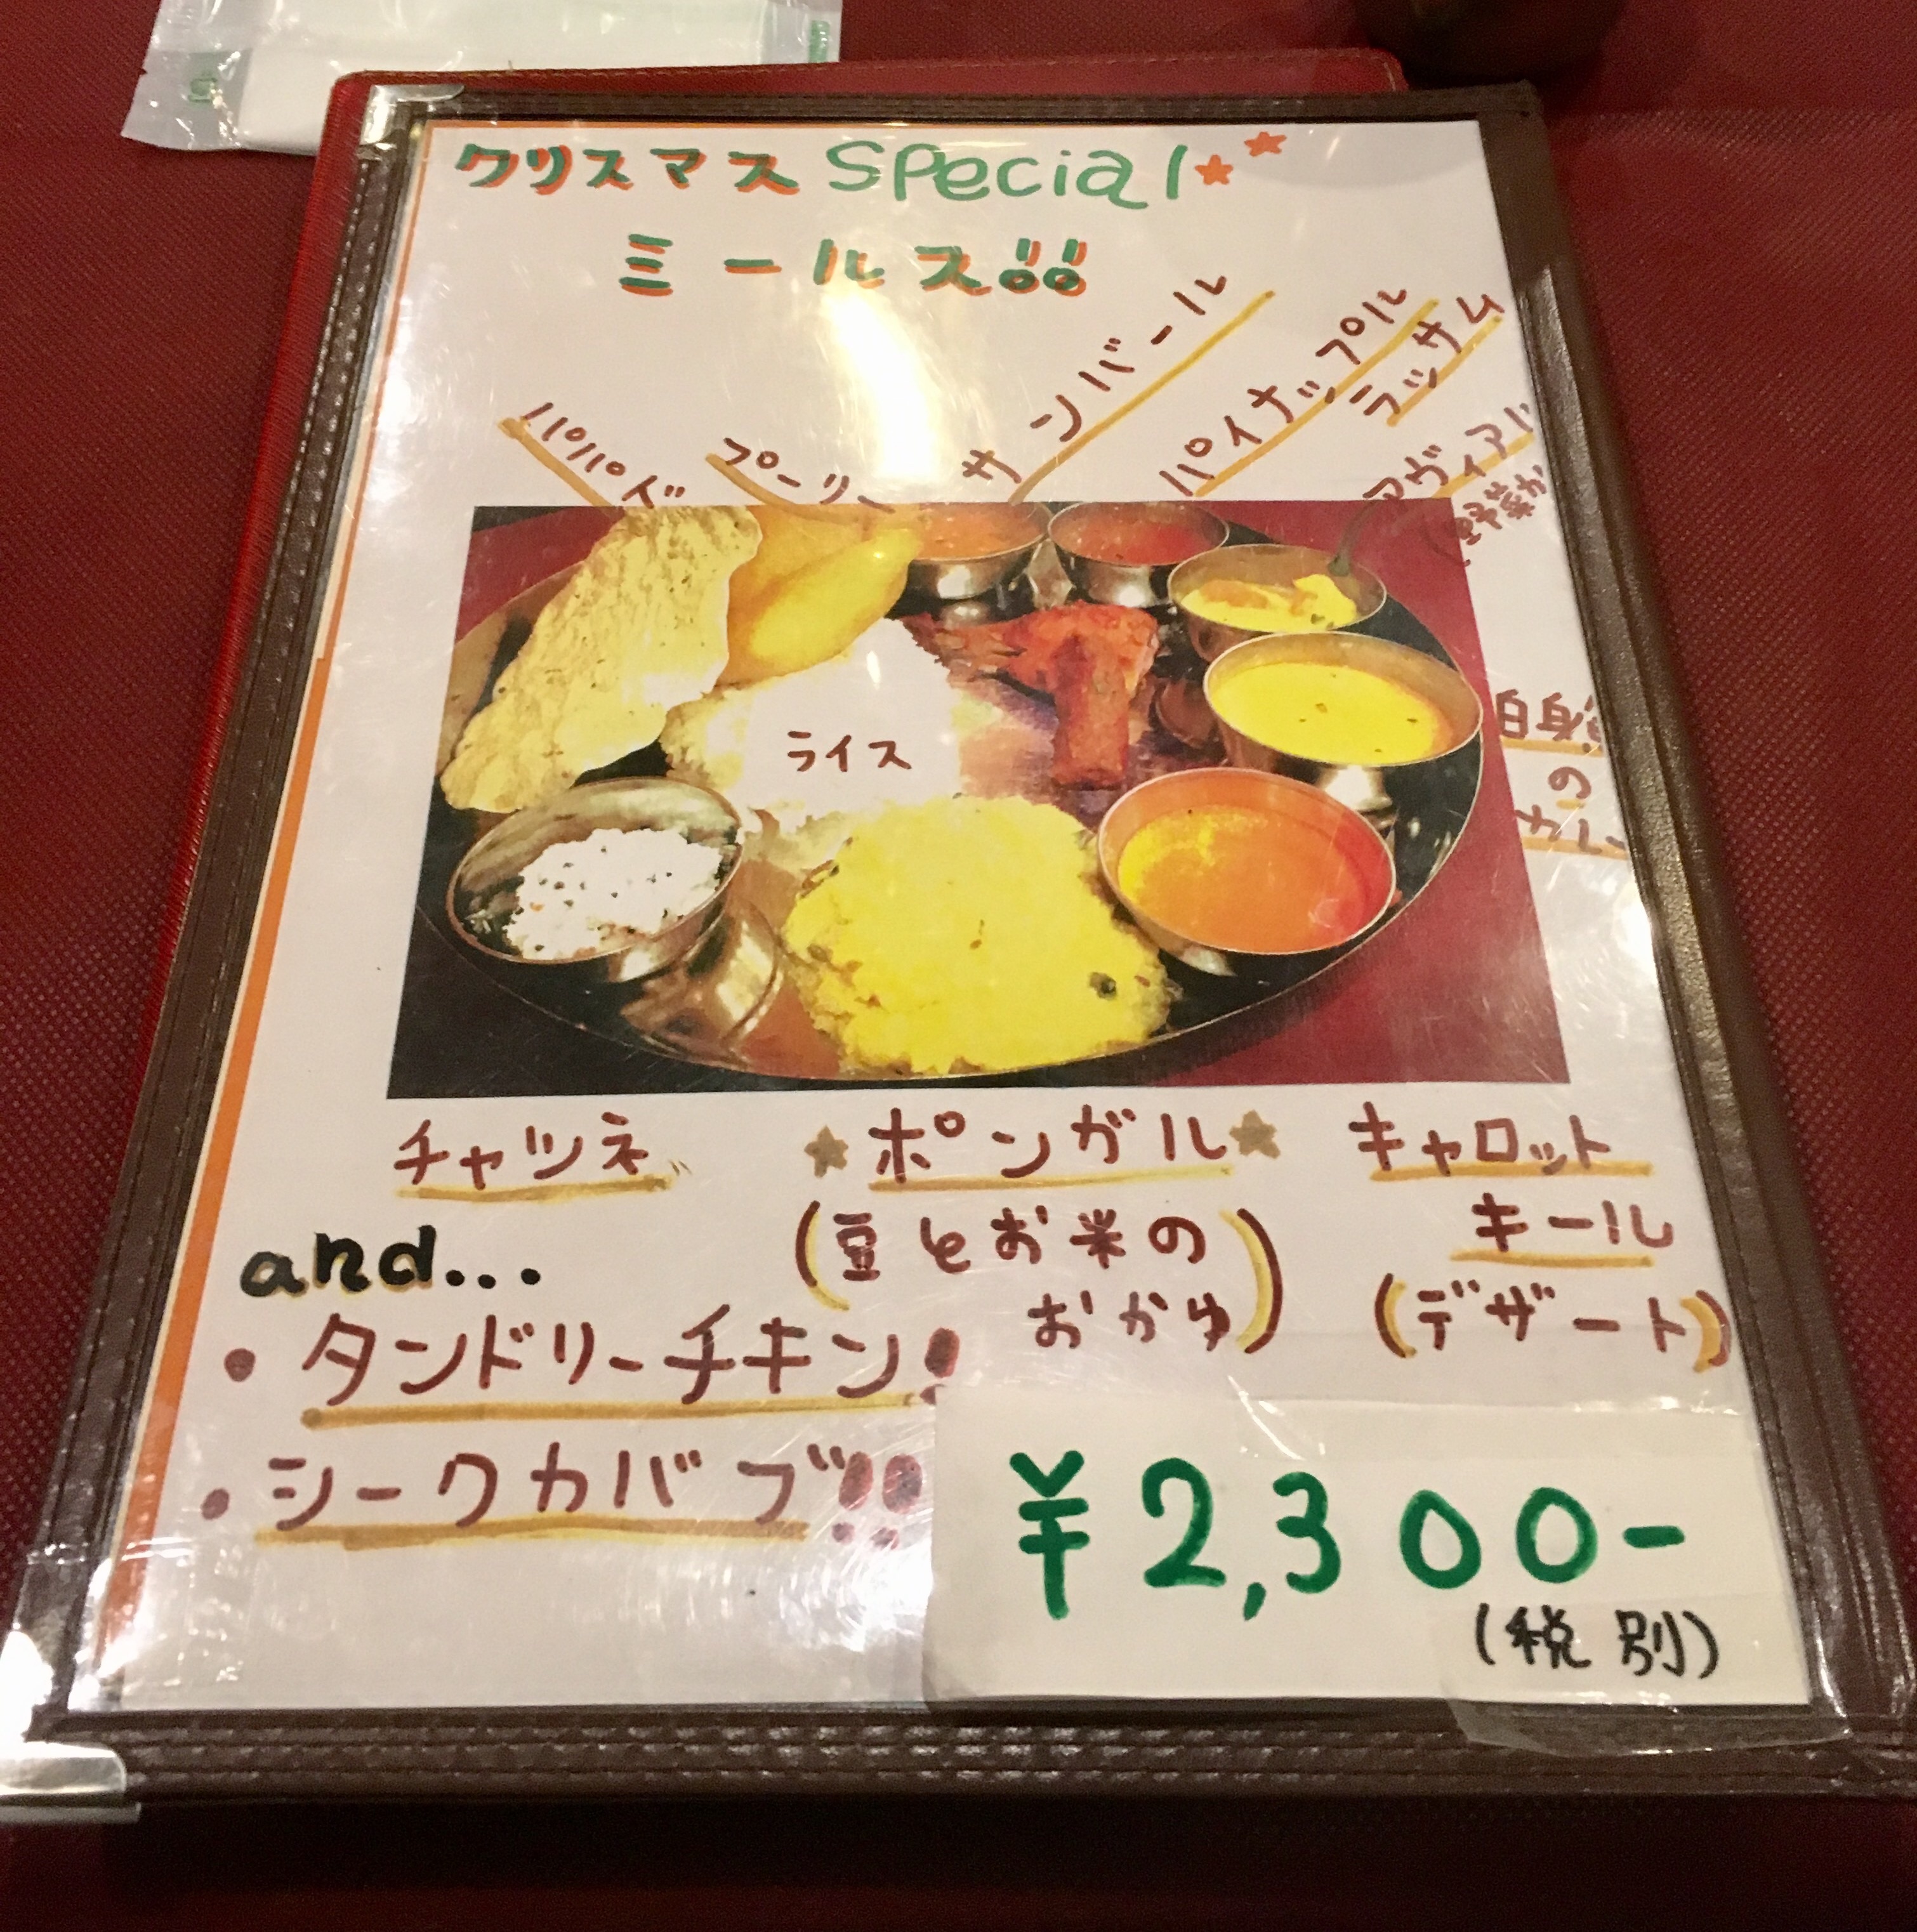 クリスマス Special
ミールス!!
パパド
プーリー
サンバール
パイナップル
ラッサム
アヴィアル
野菜カ
白身魚
の
カレー
ライス
チャツネ
ポンガル
(豆とお米の
おかゆ)
キャロット
キール
(デザート)
and...
・タンドリーチキン!
・シークカバブ!!
¥2,300-
(税別)